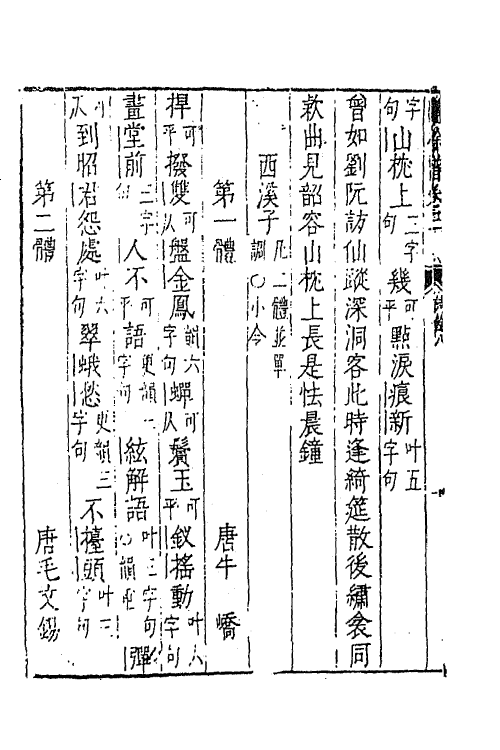 字句山枕上三字句幾可平點淚痕新叶五字句
曾如劉阮訪仙蹤深洞客此時逢綺筵散後繡衾同
欵曲見韶容山枕上長是怯晨鐘
西溪子凡二體並單調○小令
第一體 唐牛嶠
捍可平撥雙可仄盤金鳳韻六字句蟬可仄鬢玉可平釵搖動叶六字句
畫堂前三字句人不可平語更韻三字句絃解語叶三字句彈
到昭君怨處叶六字句翠蛾愁更韻三字句不擡頭叶三字句
第二體 唐毛文錫